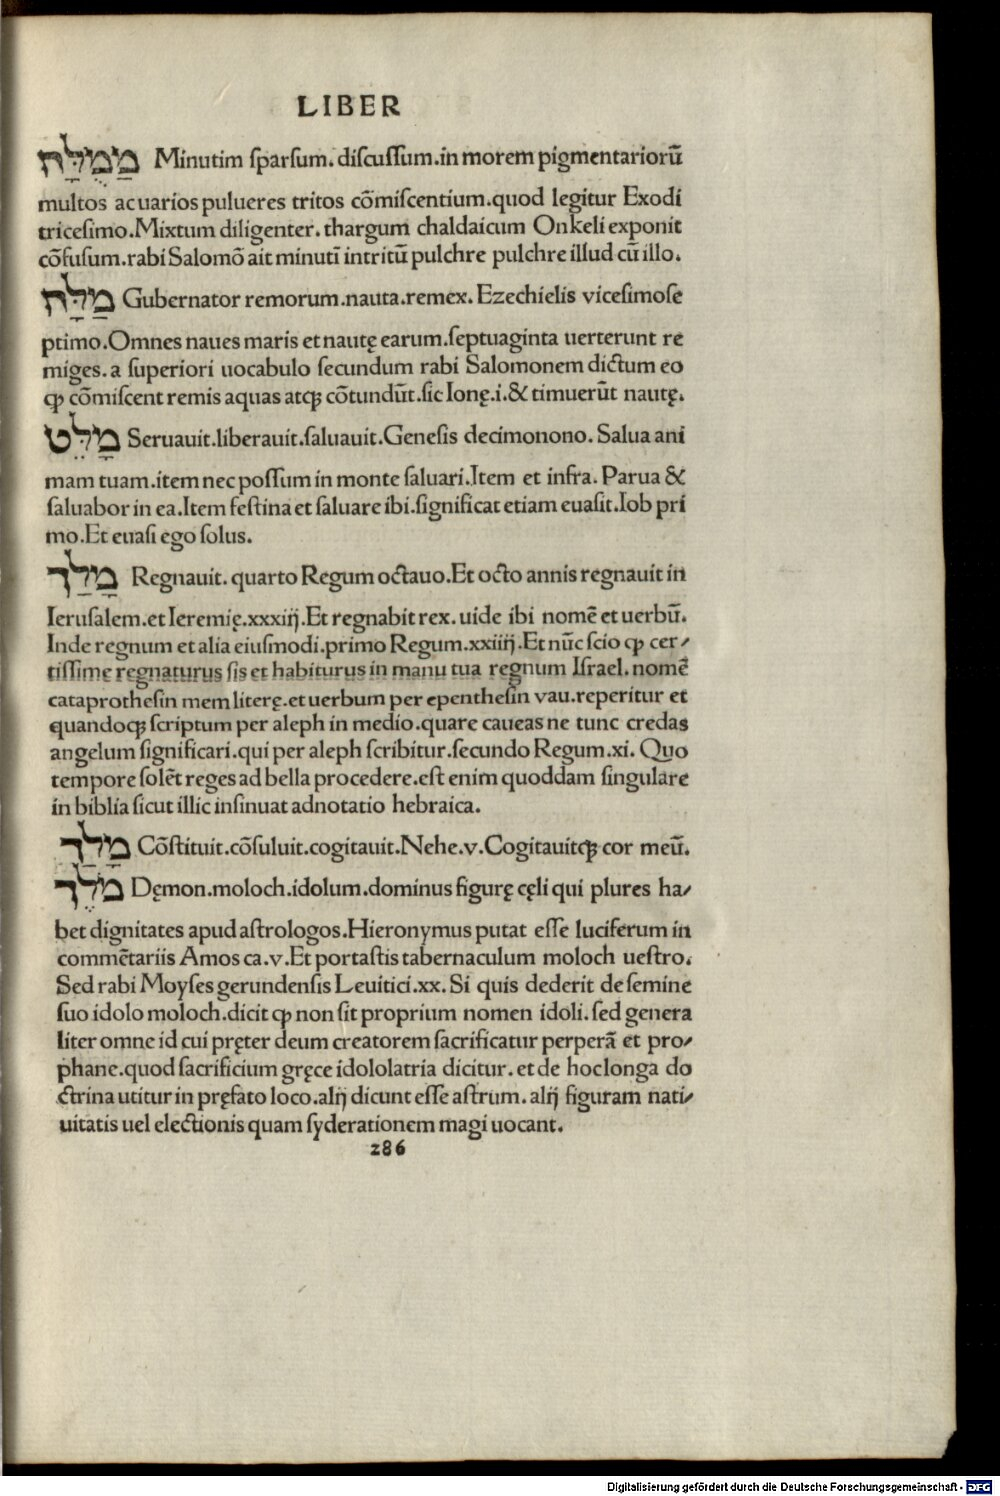 LIBER
מְמֻלָּח Minutim ſparſum. diſcuſſum.in morem pigmentariorū
multos ac uarios pulueres tritos cōmiſcentium.quod legitur Exodi
triceſimo.Mixtum diligenter. thargum chaldaicum Onkeli exponit
cōfuſum.rabi Salomō ait minutī intritū pulchre pulchre illud cū illo.
מַלָּח Gubernator remorum.nauta.remex. Ezechielis viceſimoſe
ptimo.Omnes naues maris et nautę earum.ſeptuaginta uerterunt re
miges.a ſuperiori uocabulo ſecundum rabi Salomonem dictum eo
ꝙ cōmiſcent remis aquas atqꝫ cōtundūt.ſic Ionę.i.& timuerūt nautę.
מָלֵּט Seruauit.liberauit.ſaluauit.Geneſis decimonono. Salua ani
mam tuam.item nec poſſum in monte ſaluari.Item et infra. Parua &
ſaluabor in ea.Item feſtina et ſaluare ibi.ſignificat etiam euaſit.Iob pri
mo.Et euaſi ego ſolus.
מָלַךְ Regnauit. quarto Regum octauo.Et octo annis regnauit in
Ieruſalem.et Ieremię.xxxiij.Et regnabit rex. uide ibi nomē et uerbū.
Inde regnum et alia eiuſmodi.primo Regum.xxiiij.Et nūc ſcio ꝙ cer⸗
tiſſime regnaturus ſis et habiturus in manu tua regnum Iſrael. nomē
cataprotheſin mem literę.et uerbum per epentheſin vau.reperitur et
quandoqꝫ ſcriptum per aleph in medio.quare caueas ne tunc credas
angelum ſignificari.qui per aleph ſcribitur.ſecundo Regum.xi. Quo
tempore ſolēt reges ad bella procedere.eſt enim quoddam ſingulare
in biblia ſicut illic inſinuat adnotatio hebraica.
מָלַךְ Cōſtituit.cōſuluit.cogitauit.Nehe.v.Cogitauitqꝫ cor meū.
מֹלֶךְ Dęmon.moloch.idolum.dominus figurę cęli qui plures ha⸗
bet dignitates apud aſtrologos.Hieronymus putat eſſe luciferum in
commētariis Amos ca.v.Et portaſtis tabernaculum moloch ueſtro.
Sed rabi Moyſes gerundenſis Leuitici.xx. Si quis dederit de ſemine
ſuo idolo moloch.dicit ꝙ non ſit proprium nomen idoli. ſed genera
liter omne id cui pręter deum creatorem ſacrificatur perperā et pro⸗
phane.quod ſacrificium gręce idololatria dicitur. et de hoc longa do
ctrina utitur in pręfato loco.alij dicunt eſſe aſtrum. alij figuram nati⸗
uitatis uel electionis quam ſyderationem magi uocant.
286
Digitalisierung gefördert durch die Deutsche Forschungsgemeinschaft - DFG